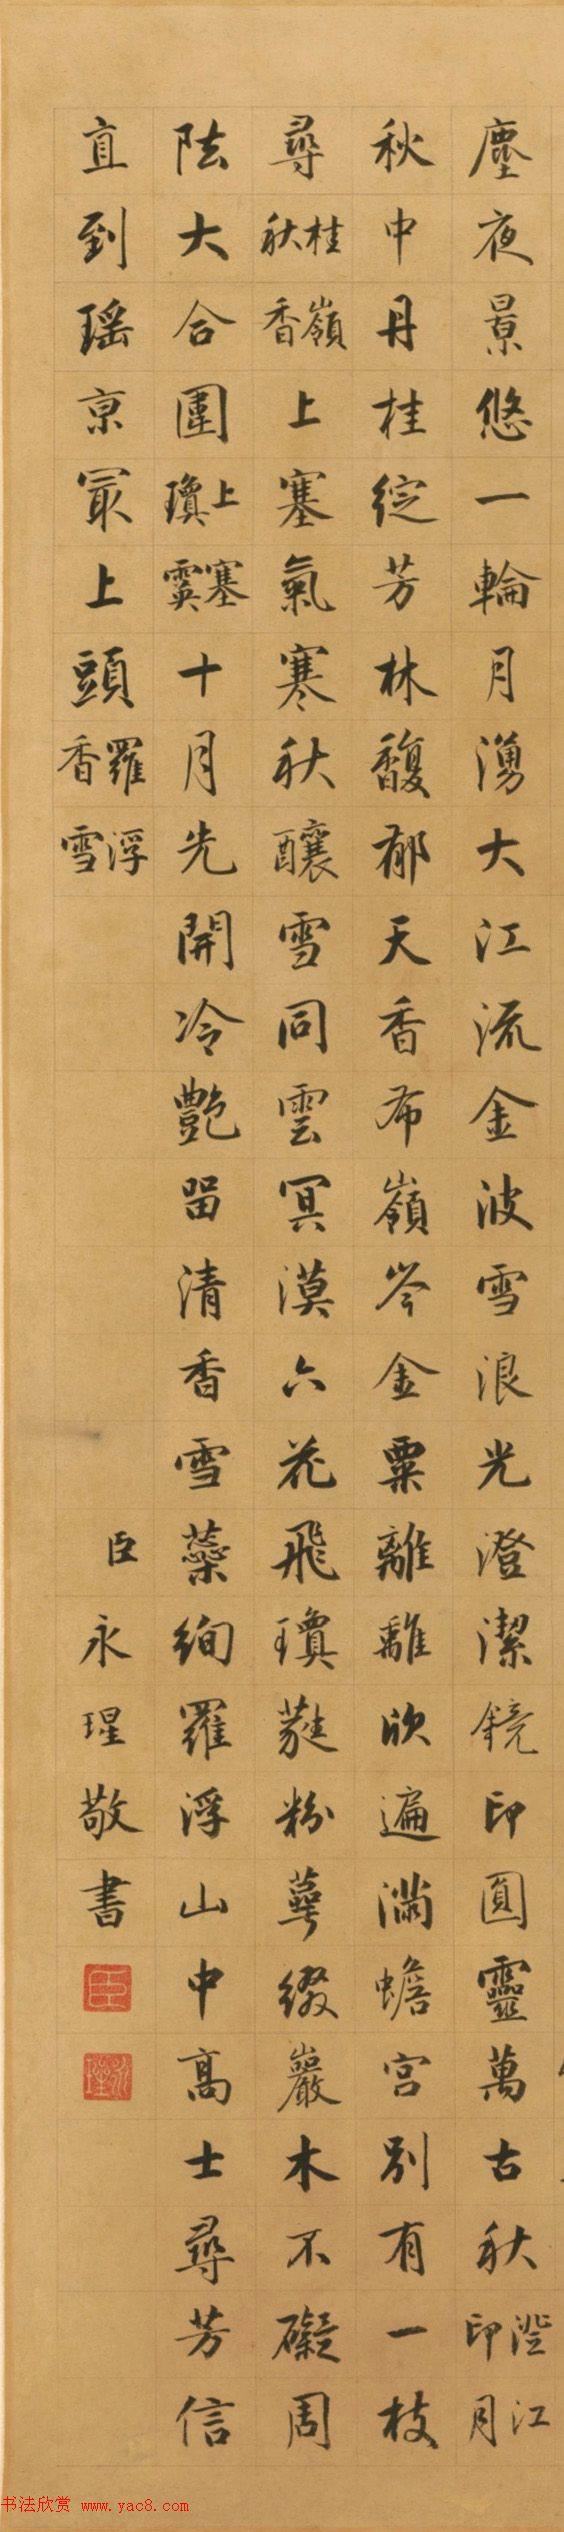 塵夜景悠一輪月湧大江流金波雪浪光澄潔鏡印圓靈萬古秋澄江印月
秋中丹桂綻芳林馥郁天香布嶺岑金粟離離欣遍滿蟾宮別有一枝
尋桂嶺秋香上塞氣寒秋釀雪同雲冥漠六花飛瓊蕤粉萼綴巖木不礙周
阹大合圍上塞瓊霙十月先開冷艷留清香雪蘂絢羅浮山中高士尋芳信
直到瑤京冣上頭羅浮香雪
臣永瑆敬書
臣
永瑆
书法欣赏 www.yac8.com